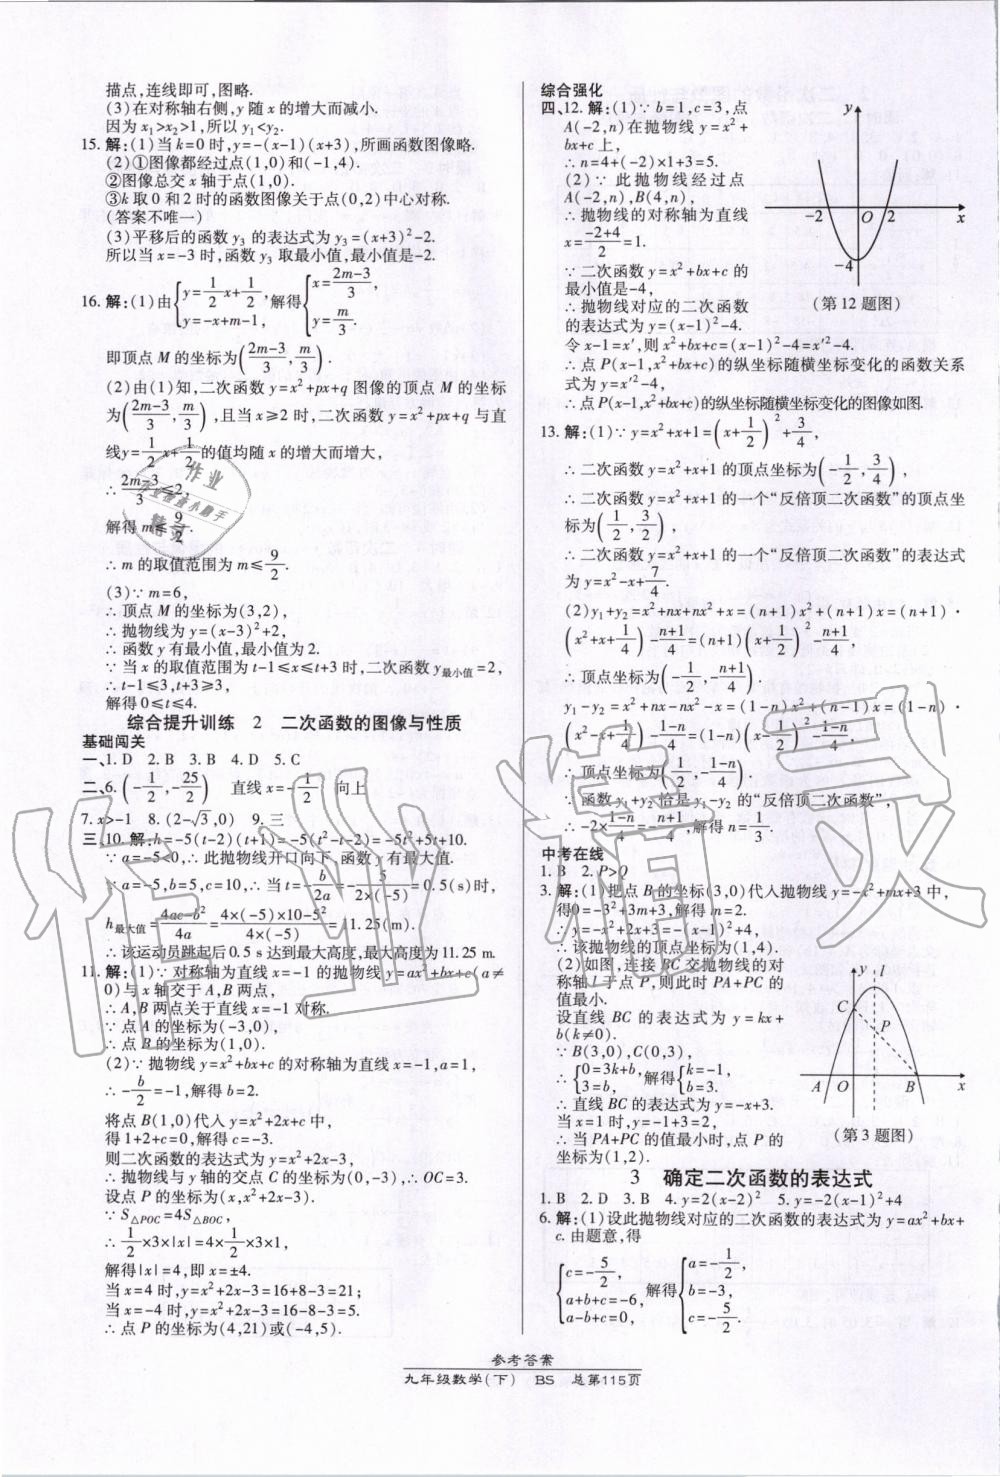 描点,连线即可,图略.
(3)在对称轴右侧,y 随 x 的增大而减小.
因为 x₁>x₂>1,所以 y₁<y₂.
15. 解:(1)当 k=0 时,y=-(x-1)(x+3),所画函数图像略.
(2)①图像都经过点(1,0)和(-1,4).
②图像总交 x 轴于点(1,0).
③k 取 0 和 2 时的函数图像关于点(0,2)中心对称.
(答案不唯一)
(3)平移后的函数 y₃ 的表达式为 y₃=(x+3)²-2.
所以当 x=-3 时,函数 y₃ 取最小值,最小值是-2.
16. 解:(1)由{y=1/2x+1/2, y=-x+m-1, 解得{x=(2m-3)/3, y=m/3.
即顶点 M 的坐标为((2m-3)/3, m/3).
(2)由(1)知,二次函数 y=x²+px+q 图像的顶点 M 的坐标
为((2m-3)/3, m/3),且当 x≥2 时,二次函数 y=x²+px+q 与直
线y=1/2x+1/2的值均随 x 的增大而增大,
∴(2m-3)/3≤2,
解得 m≤9/2.
∴m 的取值范围为 m≤9/2.
(3)∵m=6,
∴顶点 M 的坐标为(3,2),
∴抛物线为 y=(x-3)²+2,
∴函数 y 有最小值,最小值为 2.
∵当 x 的取值范围为 t-1≤x≤t+3 时,二次函数 y最小值=2,
∴t-1≤3,t+3≥3,
解得 0≤t≤4.
综合提升训练 2 二次函数的图像与性质
基础闯关
一、1. D 2. B 3. B 4. D 5. C
二、6. (-1/2,-25/2) 直线 x=-1/2 向上
7. x>-1 8. (2-√3,0) 9. 三
三、10. 解:h=-5(t-2)(t+1)=-5(t²-t-2)=-5t²+5t+10.
∵a=-5<0,∴此抛物线开口向下,函数 y 有最大值.
∵a=-5,b=5,c=10,∴当 t=-b/2a=-5/(2×(-5))=0.5(s)时,
h最大值=(4ac-b²)/4a=(4×(-5)×10-5²)/(4×(-5))=11.25(m).
∴该运动员跳起后 0.5 s 达到最大高度,最大高度为 11.25 m.
11. 解:(1)∵对称轴为直线 x=-1 的抛物线 y=ax²+bx+c(a≠
0)与 x 轴交于 A,B 两点,
∴A,B 两点关于直线 x=-1 对称.
∵点 A 的坐标为(-3,0),
∴点 B 的坐标为(1,0).
(2)∵抛物线 y=x²+bx+c 的对称轴为直线 x=-1,a=1,
∴-b/2=-1,解得 b=2.
将点 B(1,0)代入 y=x²+2x+c 中,
得 1+2+c=0,解得 c=-3.
则二次函数的表达式为 y=x²+2x-3,
∴抛物线与 y 轴的交点 C 的坐标为(0,-3),∴OC=3.
设点 P 的坐标为(x,x²+2x-3).
∵S△POC=4S△BOC,
∴1/2×3×|x|=4×1/2×3×1,
解得|x|=4,即 x=±4.
当 x=4 时,y=x²+2x-3=16+8-3=21;
当 x=-4 时,y=x²+2x-3=16-8-3=5.
∴点 P 的坐标为(4,21)或(-4,5).
综合强化
四、12. 解:(1)∵b=1,c=3,点
A(-2,n)在抛物线 y=x²+
bx+c 上,
∴n=4+(-2)×1+3=5.
(2)∵此抛物线经过点
A(-2,n),B(4,n),
∴抛物线的对称轴为直线
x=(-2+4)/2=1.
∵二次函数 y=x²+bx+c 的
最小值是-4,
∴抛物线对应的二次函数
的表达式为 y=(x-1)²-4.
y
-2 O 2 x
-4
(第 12 题图)
令 x-1=x′,则 x²+bx+c=(x-1)²-4=x′²-4.
∴点 P(x-1,x²+bx+c)的纵坐标随横坐标变化的函数关系
式为 y=x′²-4,
∴点 P(x-1,x²+bx+c)的纵坐标随横坐标变化的图像如图.
13. 解:(1)∵y=x²+x+1=(x+1/2)²+3/4,
∴二次函数 y=x²+x+1 的顶点坐标为(-1/2,3/4),
∴二次函数 y=x²+x+1 的一个“反倍顶二次函数”的顶点坐
标为(1/2,3/2),
∴二次函数 y=x²+x+1 的一个“反倍顶二次函数”的表达式
为 y=x²-x+7/4.
(2)y₁+y₂=x²+nx+nx²+x=(n+1)x²+(n+1)x=(n+1)·
(x²+x+1/4)-(n+1)/4=(n+1)(x+1/2)²-(n+1)/4,
顶点坐标为(-1/2,-(n+1)/4).
y₁-y₂=x²+nx-nx²-x=(1-n)x²+(n-1)x=(1-n)·
(x²-x+1/4)-(1-n)/4=(1-n)(x-1/2)²-(1-n)/4,
∴顶点坐标为(1/2,-(1-n)/4).
∵函数 y₁+y₂ 恰是 y₁-y₂ 的“反倍顶二次函数”,
∴-2×(1-n)/4=-(n+1)/4,解得 n=1/3.
中考在线
1. B 2. P>Q
3. 解:(1)把点 B 的坐标(3,0)代入抛物线 y=-x²+mx+3 中,
得 0=-3²+3m+3,解得 m=2.
∴y=-x²+2x+3=-(x-1)²+4,
∴该抛物线的顶点坐标为(1,4).
(2)如图,连接 BC 交抛物线的对
称轴 l 于点 P,则此时 PA+PC 的
值最小.
设直线 BC 的表达式为 y=kx+
b(k≠0).
∵B(3,0),C(0,3),
∴{0=3k+b, 3=b, 解得{k=-1, b=3.
∴直线 BC 的表达式为 y=-x+3.
当 x=1 时,y=-1+3=2,
∴当 PA+PC 的值最小时,点 P 的
坐标为(1,2).
y l
C P
A O B x
(第 3 题图)
3 确定二次函数的表达式
1. B 2. D 3. B 4. y=2(x-2)² 5. y=-2(x-1)²+4
6. 解:(1)设此抛物线对应的二次函数的表达式为 y=ax²+bx+
c. 由题意,得
{c=-5/2, a+b+c=-6, a-b+c=0, 解得{a=-1/2, b=-3, c=-5/2.
参考答案
九年级数学(下) BS 总第115页
作业精灵